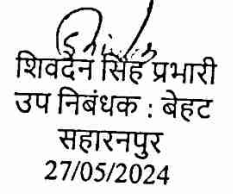 शिवदेन सिंह प्रभारी
उप निबंधक : बेहट
सहारनपुर
27/05/2024